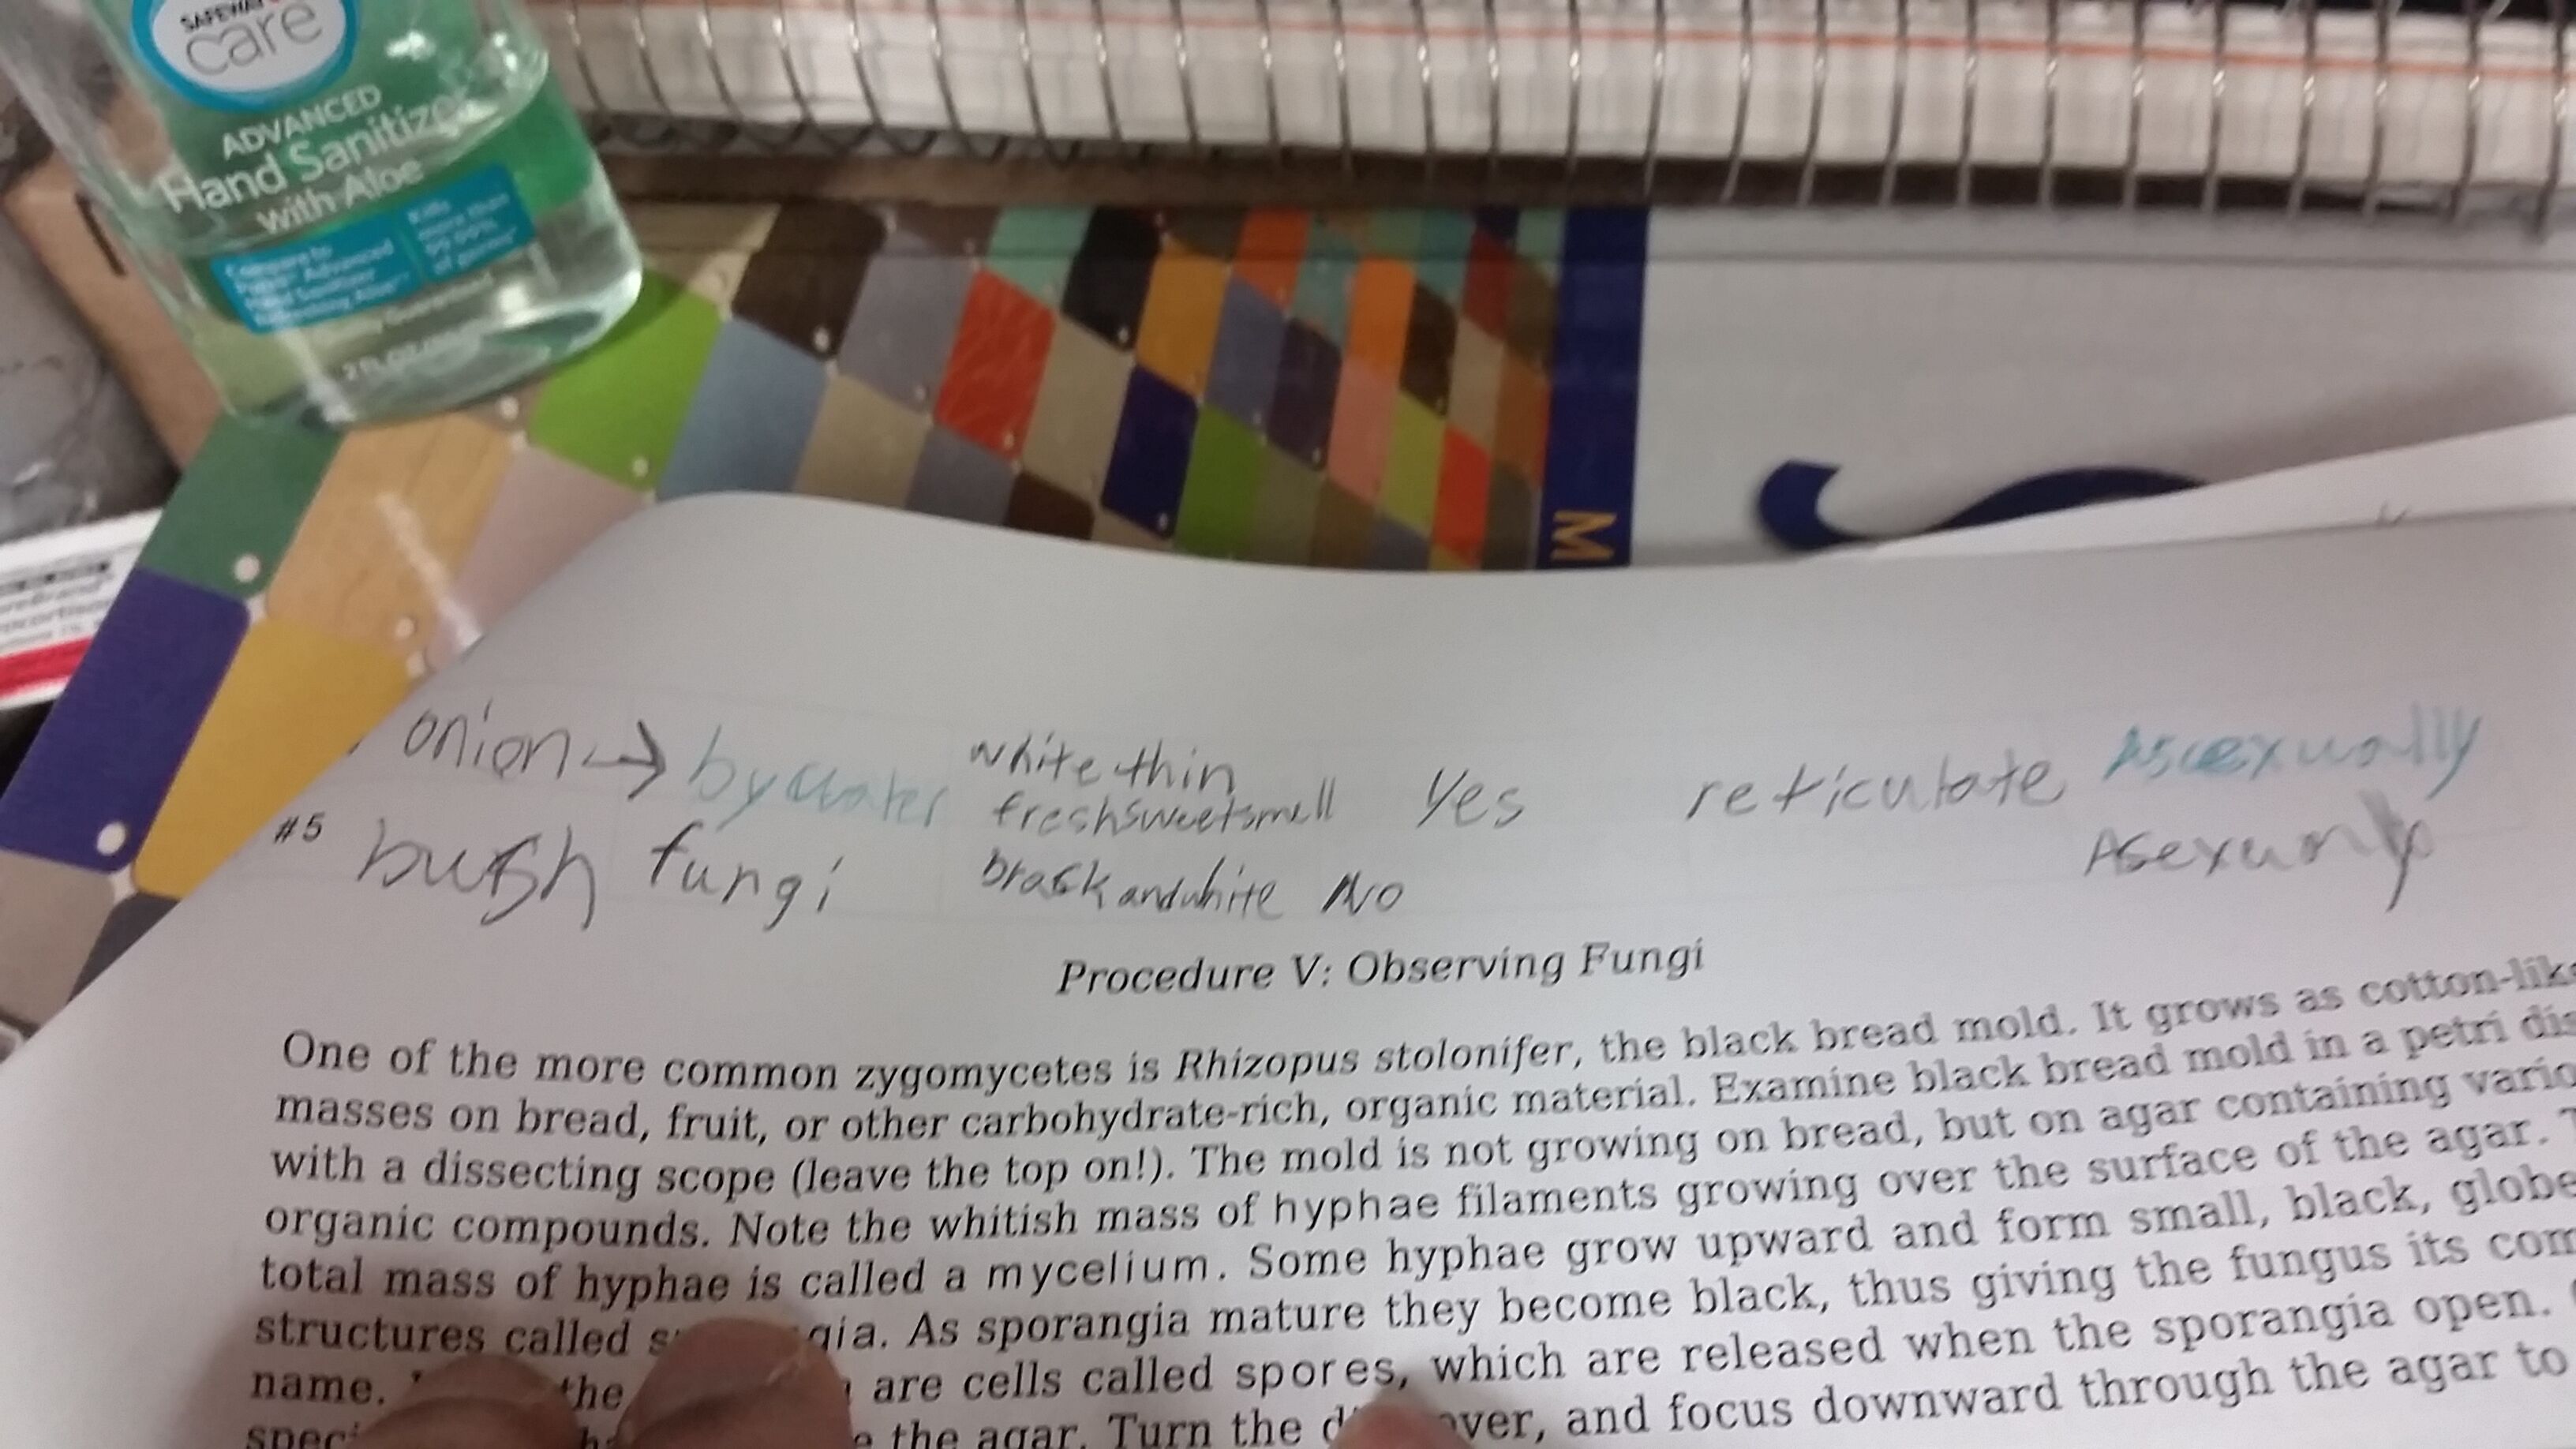 SAFEWAY
care
ADVANCED
Hand Sanitizer
with Aloe
Compare to
Advanced
Hand Sanitizer
Kills
more than
99.99%
of germs*
2 FL OZ
M
onion → by water white thin Yes reticulate Asexually
freshsweetsmell
#5 bush fungi black and white No Asexually
Procedure V: Observing Fungi
One of the more common zygomycetes is Rhizopus stolonifer, the black bread mold. It grows as cotton-like
masses on bread, fruit, or other carbohydrate-rich, organic material. Examine black bread mold in a petri dis
with a dissecting scope (leave the top on!). The mold is not growing on bread, but on agar containing vario
organic compounds. Note the whitish mass of hyphae filaments growing over the surface of the agar. T
total mass of hyphae is called a mycelium. Some hyphae grow upward and form small, black, globe
structures called s gia. As sporangia mature they become black, thus giving the fungus its com
name. the are cells called spores, which are released when the sporangia open.
speci the agar. Turn the d over, and focus downward through the agar to